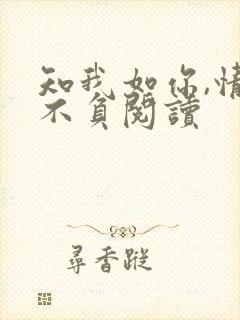 知我如你,情
不負閱讀
尋香蹤